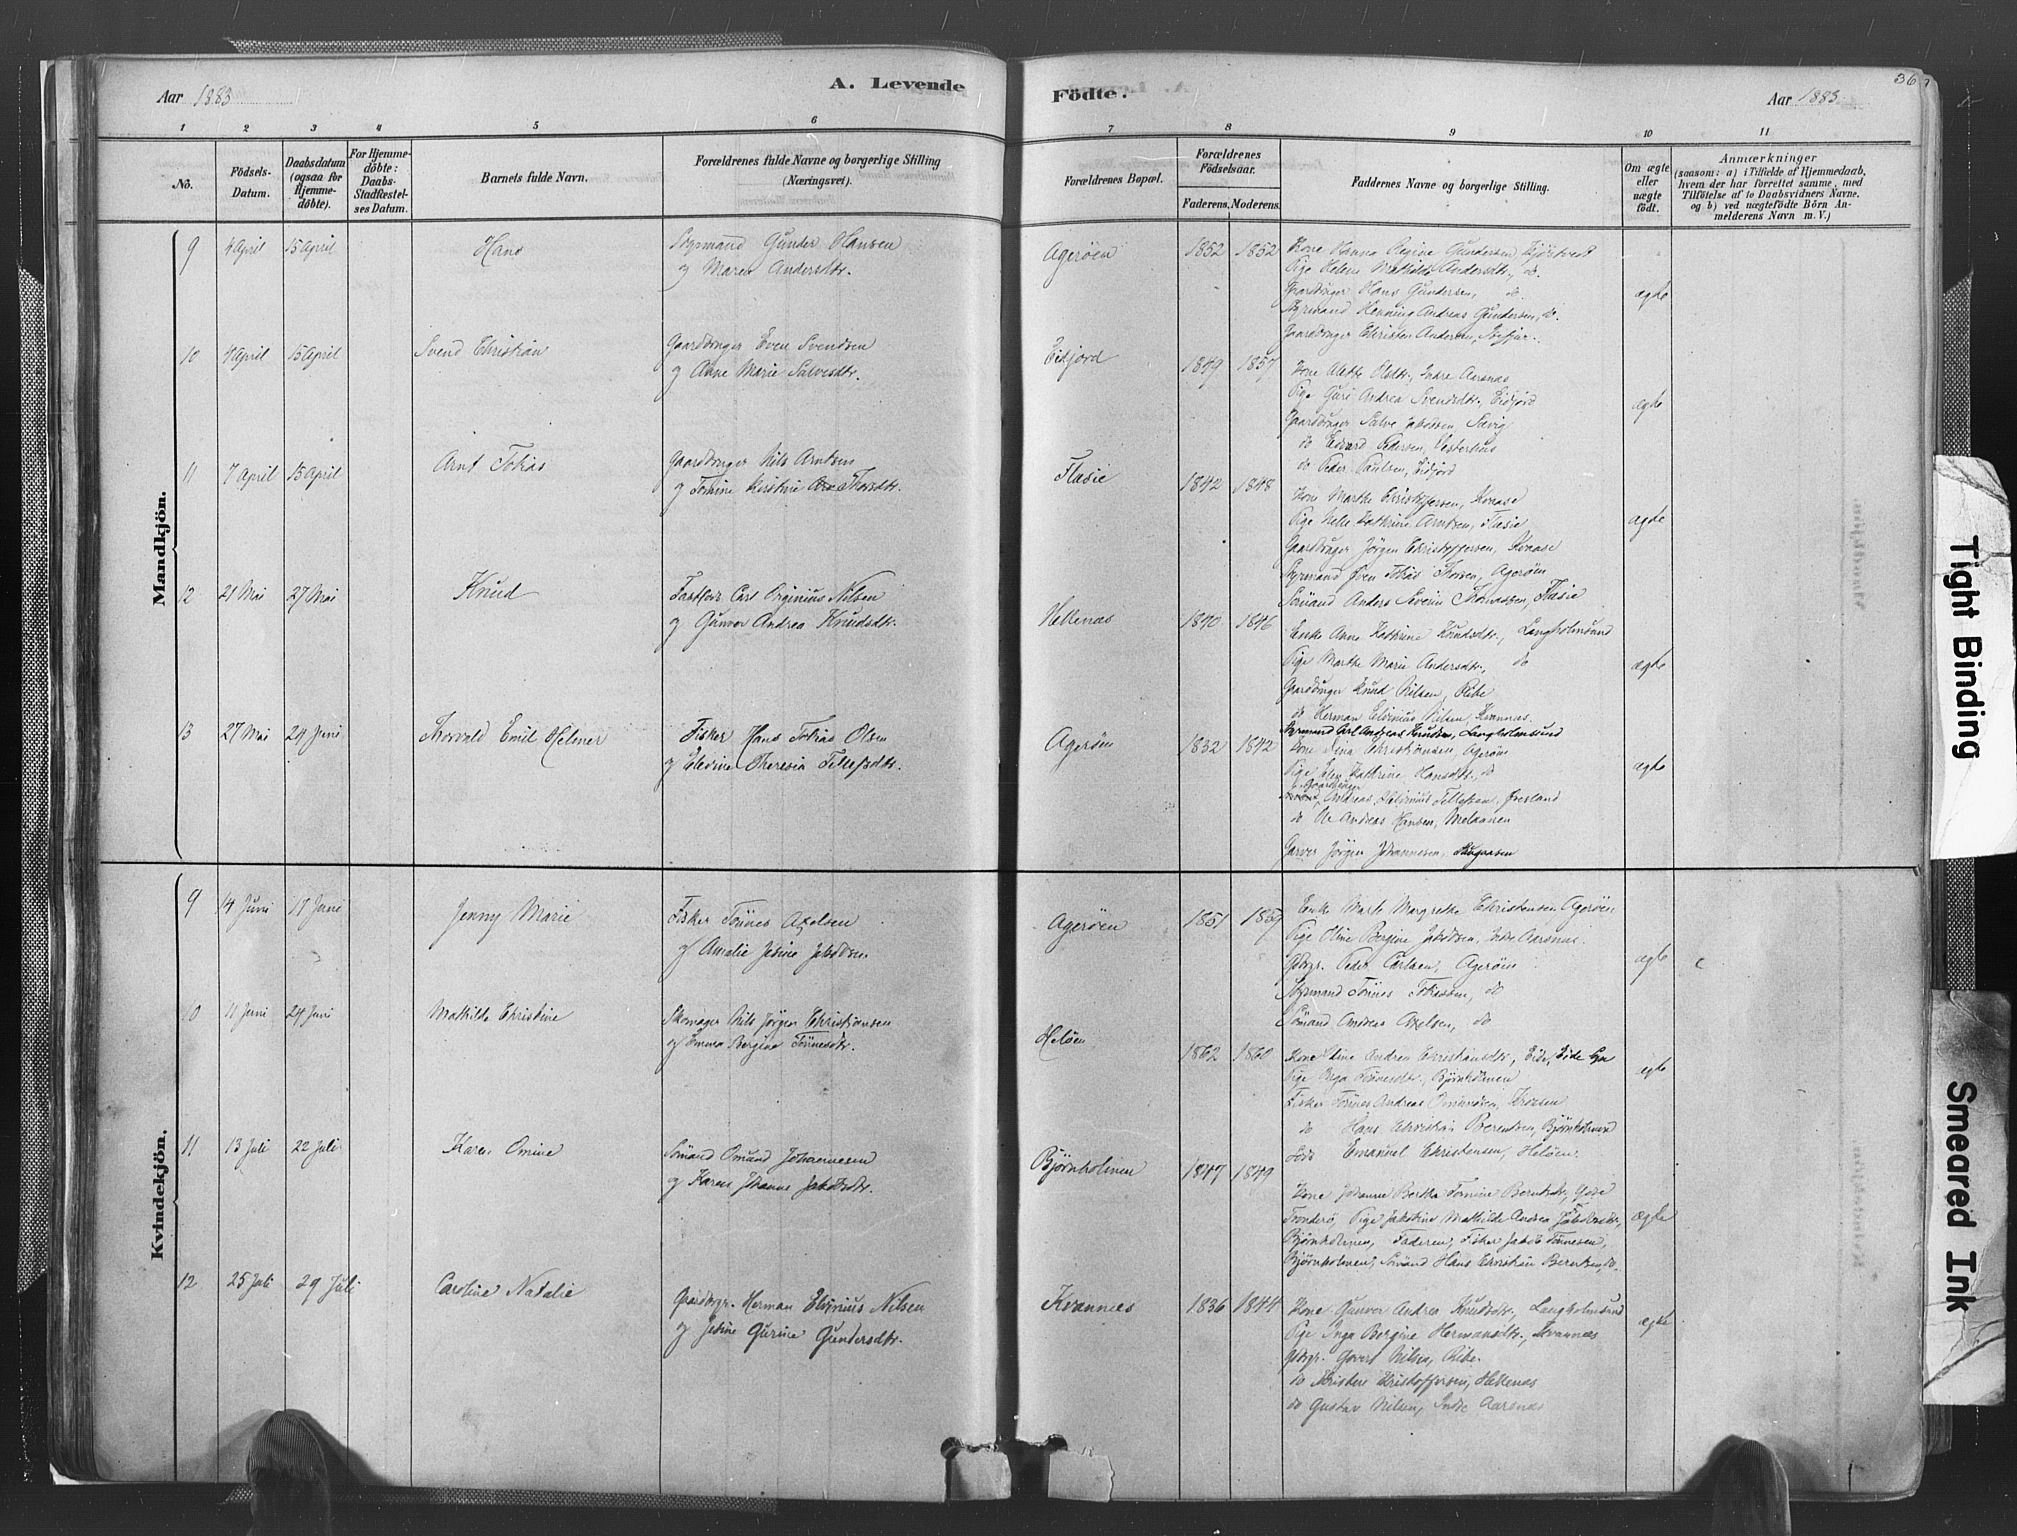 Aar 1883
A. Levende
1 2 3 4 5 6
No.
Födsels-
Datum.
Daabsdatum
(ogsaa for
Hjemme-
döbte).
For Hjemme-
döbte:
Daabs-
Stadfæstel-
ses Datum.
Barnets fulde Navn.
Forældrenes fulde Navne og borgerlige Stilling
(Næringsvei).
Mandkjön.
9 4 April 15 April Hans Styrmand Gunder Hansen
og Maren Andersdtr.
10 4 April 15 April Svend Christian Gaardbruger Even Svendsen
og Anne Marie Salvesdtr.
11 7 April 15 April Arnt Tobias Gaardbruger Nils Arntsen
og Tomine Kirstine Thorsdtr.
12 21 Mai 27 Mai Knud Carl Nilsen
og Gunvor Andrea Knudsdtr.
13 27 Mai 24 Juni Thorvald Emil Helmer Fisker Hans Tobias Olsen
og Elevine Theresia Tellefsdtr.
Kvindekjön.
9 14 Juni 17 Juni Jenny Marie Fisker Tönnes Axelsen
og Amalie Jakobsen
10 11 Juni 24 Juni Mathilde Christine Skomager Nils Jörgen Christiansen
og Emma Bergine Tönnesdtr.
11 13 Juli 22 Juli Karen Omine Sömand Omund Johannesen
og Karen Johanne Jakobsdtr.
12 25 Juli 29 Juli Caroline Natalie Gaardbgr. Herman Elvinius Nilsen
og Gurine Gundersdtr.
Födte.
Aar 1883
36
7 8 9 10 11
Forældrenes Bopæl.
Forældrenes
Födselsaar.
Faderens. Moderens.
Faddernes Navne og borgerlige Stilling.
Om ægte
eller
uægte
födt.
Anmærkninger
(saasom: a) i Tilfælde af Hjemmedaab,
hvem der har forrettet samme, med
Tilföielse af to Daabsvidners Navne.
og b) ved uægtefödte Börn An-
melderens Navn m. V.)
Ageröen 1852 1852 Kone Hanna Regine Gundersen
Pige Helene Mathilde Andersdtr., do.
Gaardbruger Hans Gundersen, do. ægte
Styrmand Henning Andreas Gundersen, do.
Gaardbruger Christen Andersen,
Eidjord 1849 1857 Kone Alette Olsdtr., Indre Aarsnæs
Pige Guri Andrea Svendsdtr., Eidjord
Gaardbruger Salve Jakobsen, Sævig ægte
do Edvard Pedersen, Vesterhus
do Peder Paulsen, Eidjord
Flasie 1842 1848 Kone Marthe Christoffersen, Kvaase
Pige Nille Kathrine Arntsen, Flasie
Gaardbruger Jörgen Christoffersen, Kvaase ægte
Styrmand Sven Tobias Thorsen, Ageröen
Sömand Anders Severin Thomassen, Flasie
Hellenæs 1840 1846 Enke Anne Kathrine Knudsdtr., Langholmsund
Pige Marthe Marie Andersdtr., do ægte
Gaardbruger Knud Nilsen, Ribe
do Herman Elvinius Nilsen, Kvannæs
Styrmand Carl Andreas Knudsen, Langholmsund
Ageröen 1832 1842 Kone Christiansen, Ageröen
Pige Kathrine Hansdtr., do ægte
Gaardbruger Andreas Tellefsen,
do Ole Andreas Hansen,
Garver Jörgen Johannesen,
Ageröen 1851 1859 Enke Marte Margrethe Christensen Ageröen
Pige Oline Bergine Jakobsen, Indre Aarsnæs.
Gdbgr. Peder Carlsen, Ageröen ægte
Styrmand Tönnes Tobiassen, do
Sömand Andreas Axelsen, do
Helöen 1862 1860 Kone Andrea Christiansdtr., Eide,
Pige Inga Tönnesdtr., Björnholmen ægte
Fisker Tönnes Andreas
do Hans Christian Berentsen, Björnholmen
Emanuel Christensen, Helöen
Björnholmen 1847 1849 Kone Johanne Bertha Tomine Berntsdtr.,
Pige Jakobine Mathilde Andrea Jakobsdtr., ægte
Björnholmen, Faderen, Fisker Jakob Tönnesen,
Björnholmen, Sömand Hans Christian Berentsen, do.
Kvannæs 1836 1844 Kone Gunvor Andrea Knudsdtr., Langholmsund
Pige Inga Bergine Hermansdtr., Kvannæs ægte
Gdbgr. Govert Nilsen, Ribe.
do Christoffersen, Hellenæs
do Gustav Nilsen, Indre Aarsnæs
Tight Binding
Smeared Ink